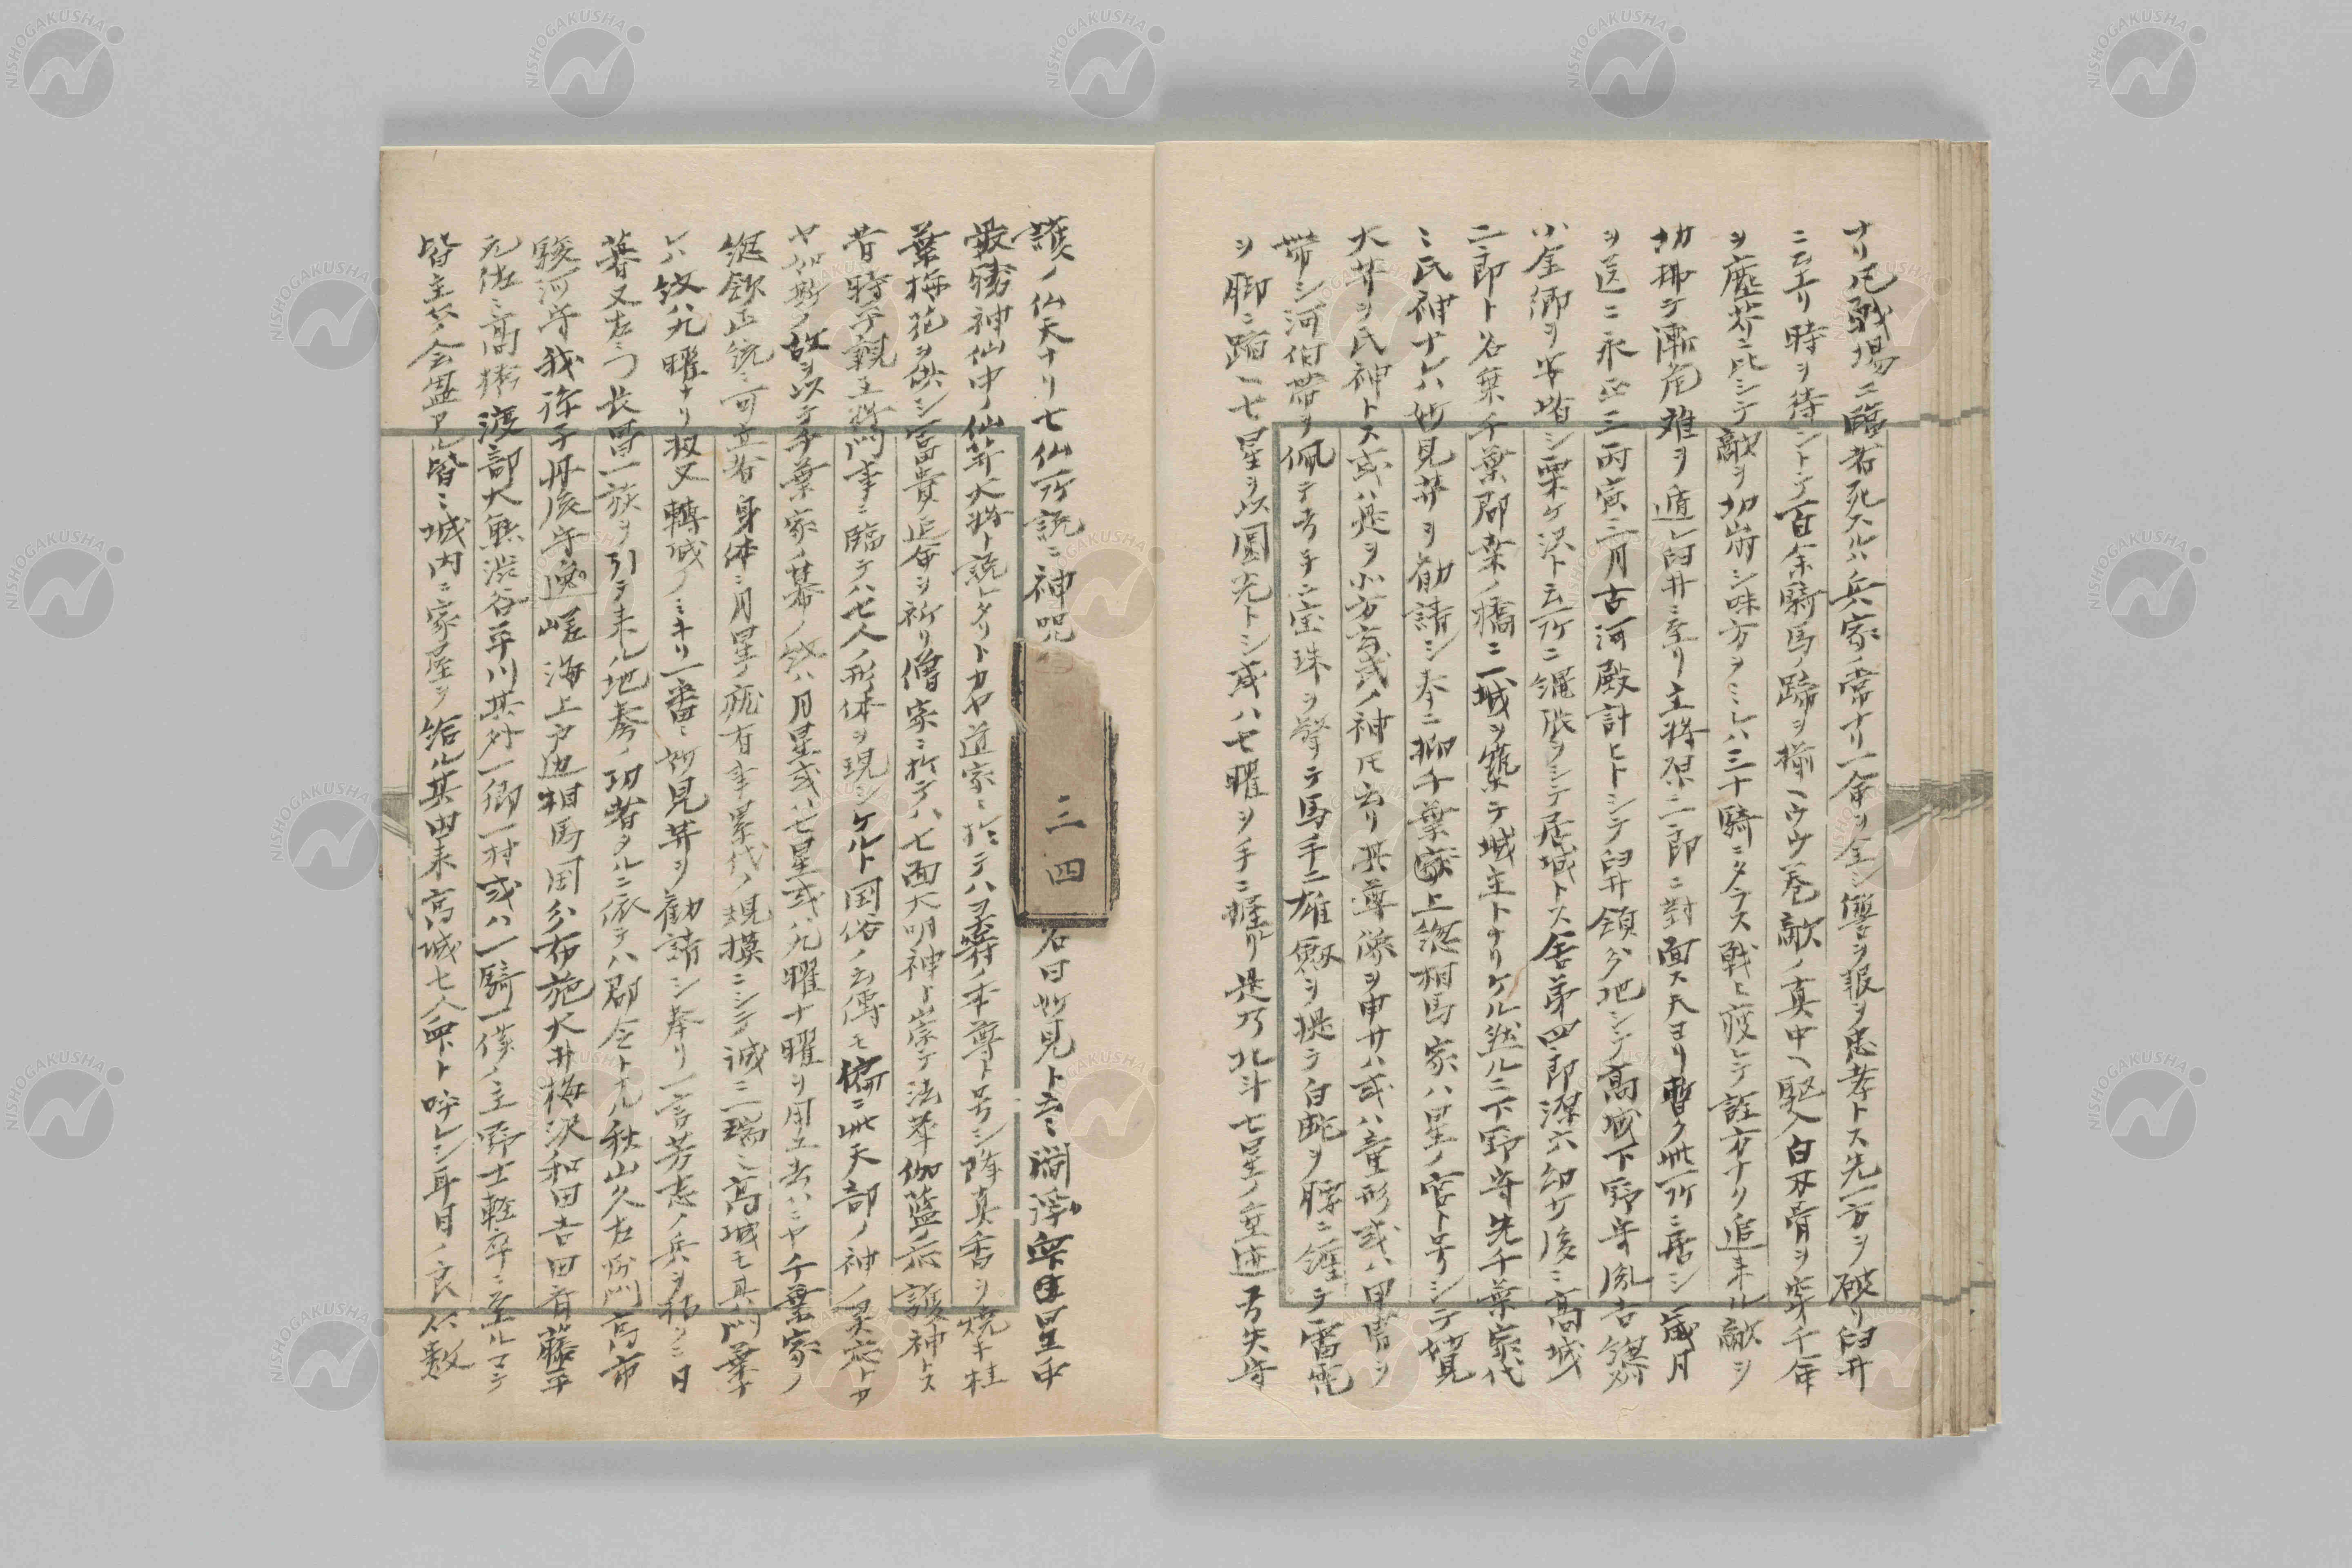 ナリ凡戦場ニ臨者死スルハ兵家ノ常ナリ一命ヲ全シ讐ヲ報ヲ忠孝トス先一方ヲ破リ臼井
ニ云ナリ時ヲ待ントテ百余騎馬ノ蹄ヲ揃ヘウツ巻敵ノ真中ヘ駆入白刃骨ヲ穿千年
ヲ塵芥ニ比シテ敵ヲ切崩シ味方ヲミレハ三十騎ニタラス戦ヒ疲レテ詮方ナク追来ル敵ヲ
切拂テ漸危難ヲ遁レ臼井ニ至リ主将原二郎ニ對面ス夫ヨリ暫ク此所ニ居シ歳月
ヲ送ニ永正三丙寅三月古河殿計ヒトシテ臼井領分地シテ高城下野守胤吉
小金郷ヲ安堵シ栗ケ沢ト云所ニ縄張ヲシテ居城トス舎弟四郎深六幼サ後ニ高城
二郎ト名乗千葉郡ノ橋ニ一城ヲ築テ城主トナリケル然ルニ下野守先千葉家代
ニ氏神ナレハ妙見井ヲ勧請シ奉ニ抑千葉家上総相馬家ハ星ノ宮ト号シテ妙見
大井ヲ氏神トス或ハ是ヲ北方ノ神トモ云リ其尊像ヲ申サハ或ハ童形或ハ甲冑ヲ
帯シ河伯帯ヲ佩テ左手ニ宝珠ヲ擎テ馬手ニ雄劔ヲ提テ白蛇ヲ膊ニ纏テ霊亀
ヲ脚ニ踏ヘ七星ヲ以圓光トシ或ハ七曜ヲ手ニ握リ是乃北斗七星ノ垂迹弓矢守
護ノ仏天ナリ七仏所説ニ神呪
三四
名曰妙見ト云ニ閻浮衆星中
最勝神仙中ノ仙井大将ト説レタリトカヤ道家ニ於テハヲ本尊ト号シ降真香ヲ焼キ桂
葉梅花ヲ供シ富貴延命ヲ祈リ僧家ニ於テハ七面大明神ト崇テ法華伽藍ノ守護神トス
昔時平親王将門事ニ臨テハ七人ノ形体ヲ現シケルト国俗ノ云傳モ偏ニ此天部ノ神ノ冥応トカ
ヤ如斯ノ故ヲ以テ千葉家ノ幕ノ紋ハ月星或ハ七星或ハ九曜十曜ヲ用
総領正統ニ可立者身体ニ月星ノ有事累代ノ規模ニシテ誠ニ瑞ミ高城モ其門葉ナ
レハ紋ハ九曜ナリ扨又轉城ノミキリ一番ニ妙見井ヲ勧請シ奉リ一言芳志ノ兵ヲ招ク日
暮又左ニ門長冒一族ヲ引テ来ル地ノ功者タルニ依テハ郡令トル秋山久左衛門高市
駿河守我孫子丹後守海上戸辺相馬国分布施大井梅沢和田吉田斉藤平
元佐ミ高橋渡部大熊渋谷平川其外一郷一村或ハ一騎一僕ノ主野士軽卒ニ至ルマテ
皆主ノ会盟アル皆ミ城内ニ家屋ヲ給ル其由来高城七人衆ト呼レシ耳目ノ良仁数